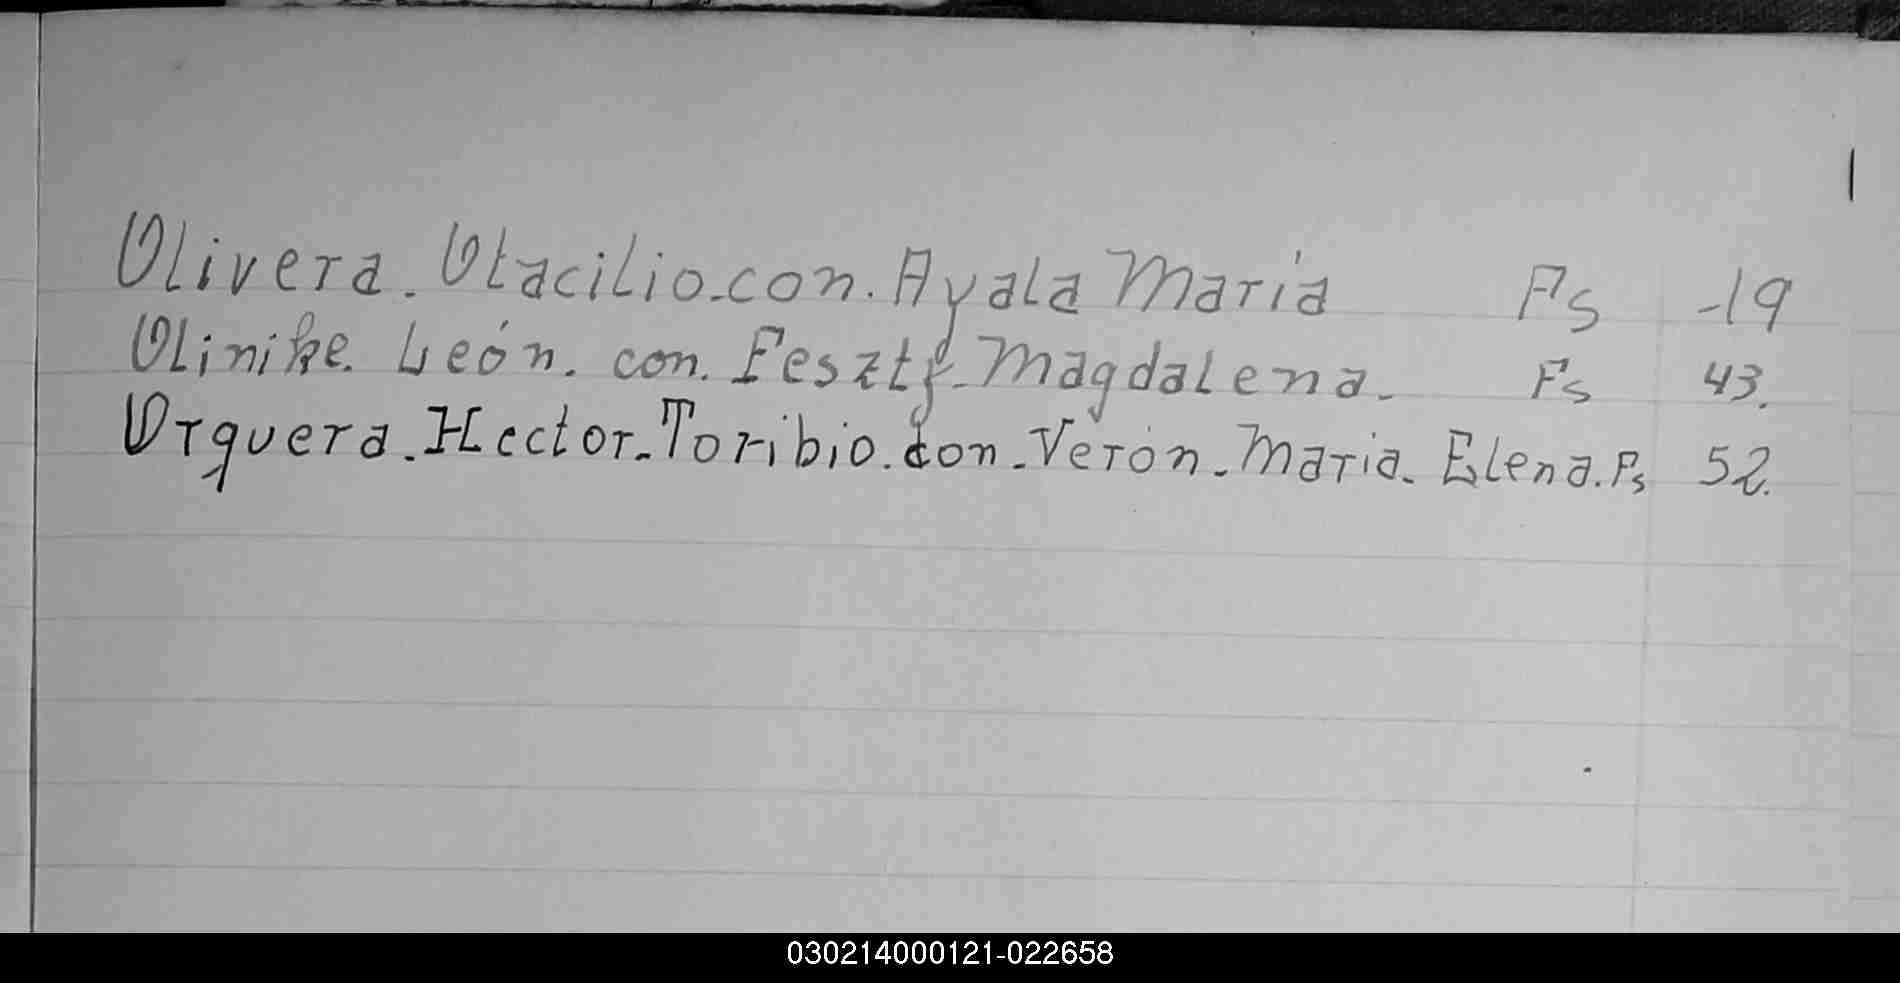 Olivera. Otacilio.con. Ayala María Fs -19
Olinike. León. con. Feszty-Magdalena. Fs 43.
Orquera. Hector-Toribio. con-Verón-Maria. Elena. Fs 52.
030214000121-022658